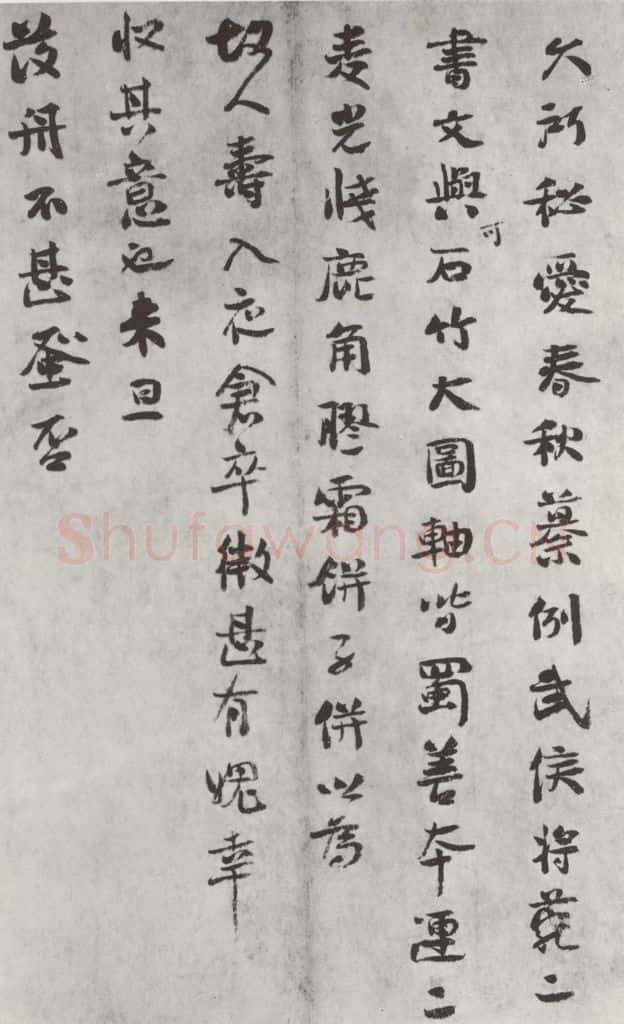 久所秘愛春秋纂例武侯將苑二
書文與可石竹大圖軸皆蜀善本運二
麦光牋鹿角膠霜餅子併以為
故人壽入夜倉卒微甚有愧幸
収其意也未旦
發冊不甚蛩否
Shufawang.cn